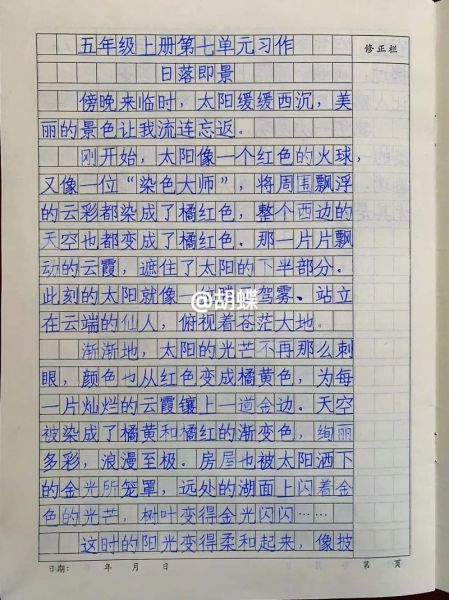 五年级上册第七单元习作
修正栏
日落即景
傍晚来临时，太阳缓缓西沉，美
丽的景色让我流连忘返。
刚开始，太阳像一个红色的火球，
又像一位“染色大师”，将周围飘浮
的云彩都染成了橘红色，整个西边的
天空也都变成了橘红色。那一片片飘
动的云霞，遮住了太阳的下半部分。
此刻的太阳就像一 驾雾、站立
@胡蝶
在云端的仙人，俯视着苍茫大地。
渐渐地，太阳的光芒不再那么刺
眼，颜色也从红色变成橘黄色，为每
一片灿烂的云霞镶上一道金边。天空
被染成了橘黄和橘红的渐变色，绚丽
多彩，浪漫至极。房屋也被太阳洒下
的金光所笼罩，远处的湖面上闪着金
色的光芒，树叶变得金光闪闪……
这时的阳光变得柔和起来，像披
日期： 年 月 日 第 页